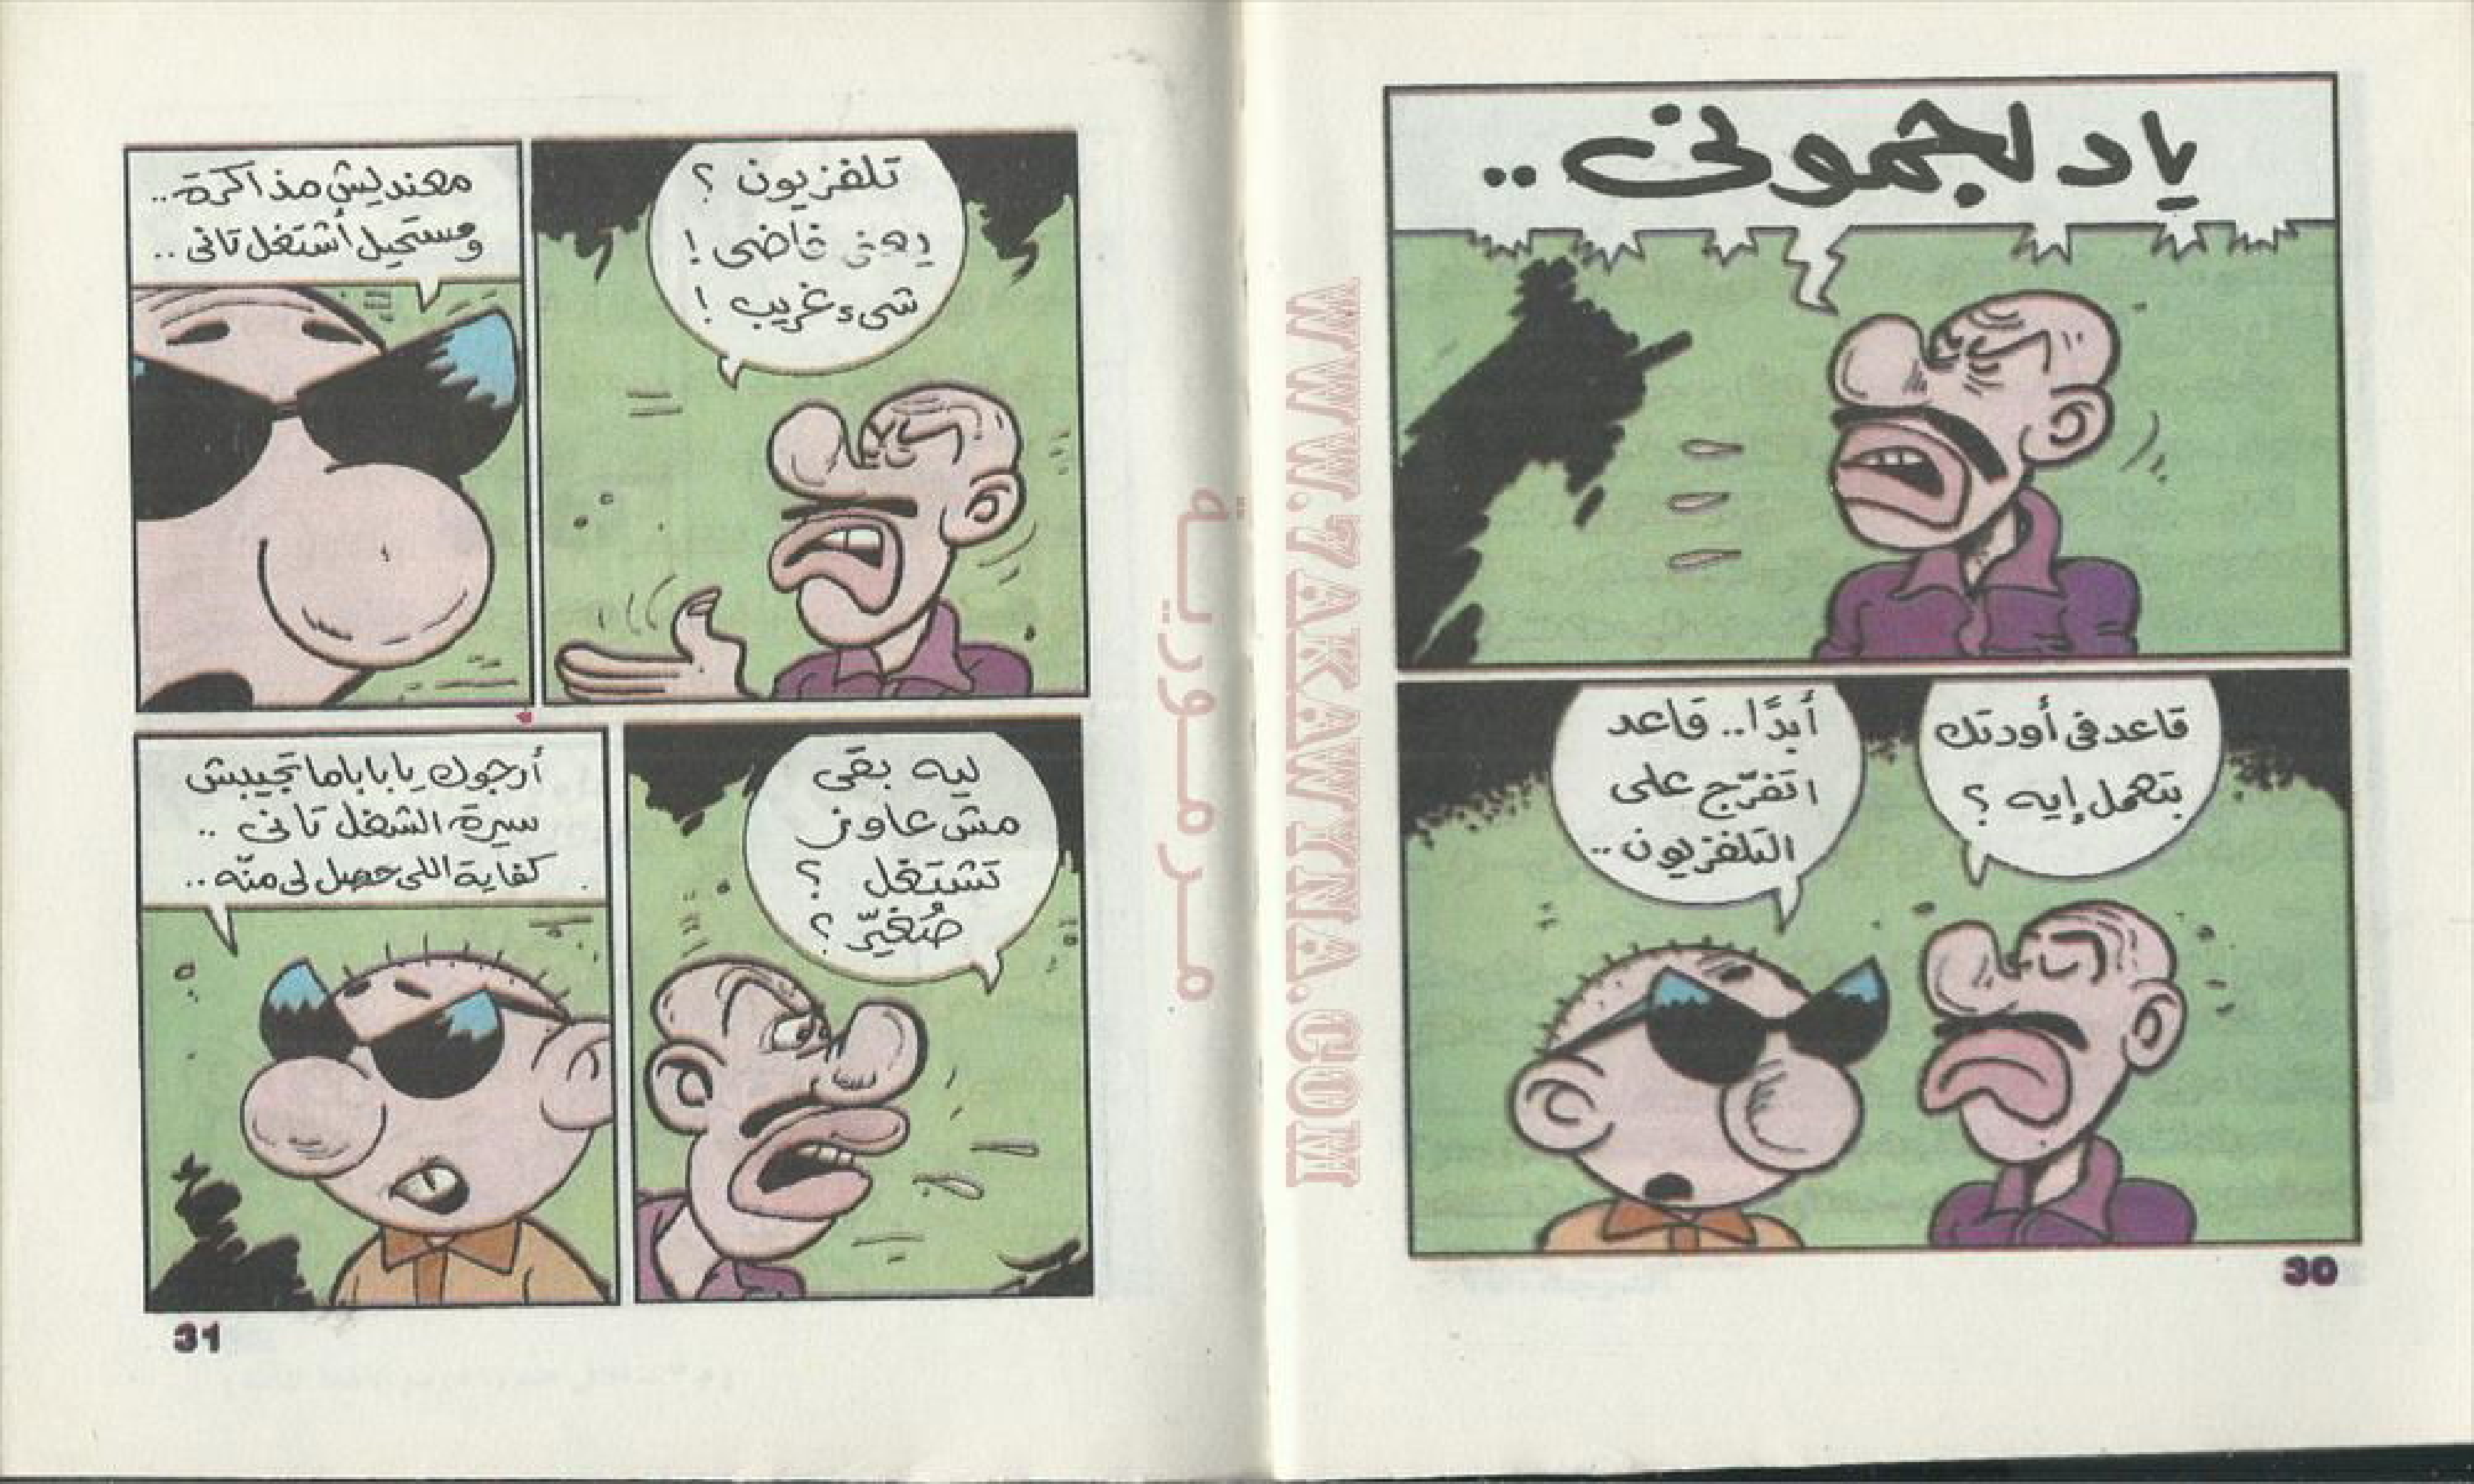 ياد لجموني..
قاعد في أودتك
بتعمل إيه ؟
أبدًا.. قاعد
اتفرّج على
التلفزيون..
30
WWW.7AKAWINA.COM
مرمورية
تلفزيون ؟
يعني فاضي !
شيء غريب !
معنديش مذاكرة..
ومستحيل أشتغل تاني..
ليه بقى
مش عاوز
تشتغل ؟
صُغيّر ؟
أرجوك يا بابا ما تجيبش
سيرة الشغل تاني ..
كفاية اللي حصل لي منّه..
31